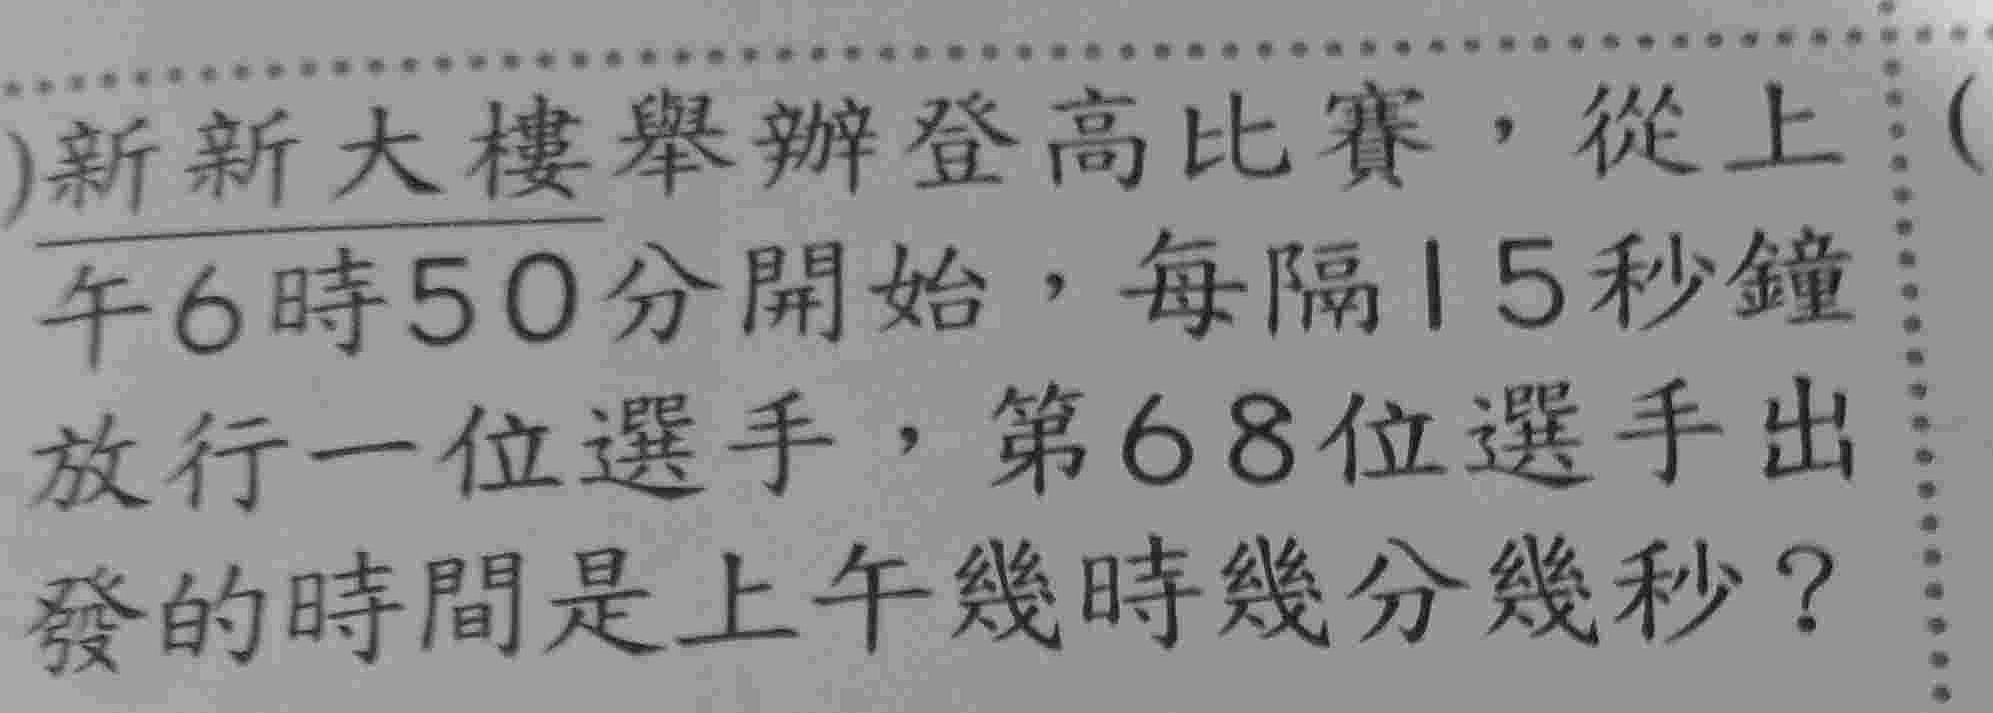 )新新大樓舉辦登高比賽，從上 (
午6時50分開始，每隔15秒鐘
放行一位選手，第68位選手出
發的時間是上午幾時幾分幾秒？